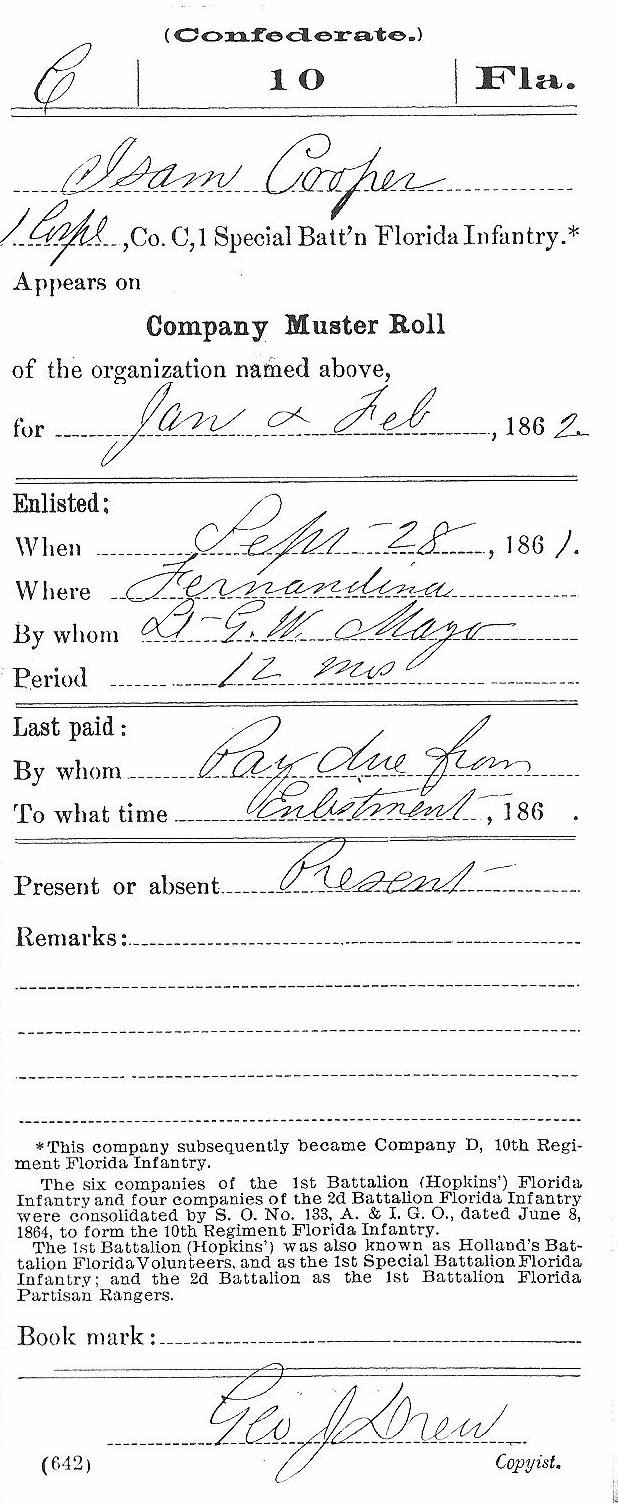 (Confederate.)
C | 10 | Fla.
Isam Cooper
1 Corpl, Co. C, 1 Special Batt'n Florida Infantry.*
Appears on
Company Muster Roll
of the organization named above,
for Jan & Feb, 1862.
Enlisted:
When Sept 28, 1861.
Where Fernandina
By whom Lt G. W. Mayo
Period 12 mos
Last paid:
By whom Pay due from
To what time Enlistment, 186 .
Present or absent Present
Remarks:
*This company subsequently became Company D, 10th Regi-
ment Florida Infantry.
The six companies of the 1st Battalion (Hopkins') Florida
Infantry and four companies of the 2d Battalion Florida Infantry
were consolidated by S. O. No. 133, A. & I. G. O., dated June 8,
1864, to form the 10th Regiment Florida Infantry.
The 1st Battalion (Hopkins') was also known as Holland's Bat-
talion Florida Volunteers, and as the 1st Special Battalion Florida
Infantry; and the 2d Battalion as the 1st Battalion Florida
Partisan Rangers.
Book mark:
Geo J Drew
(642) Copyist.